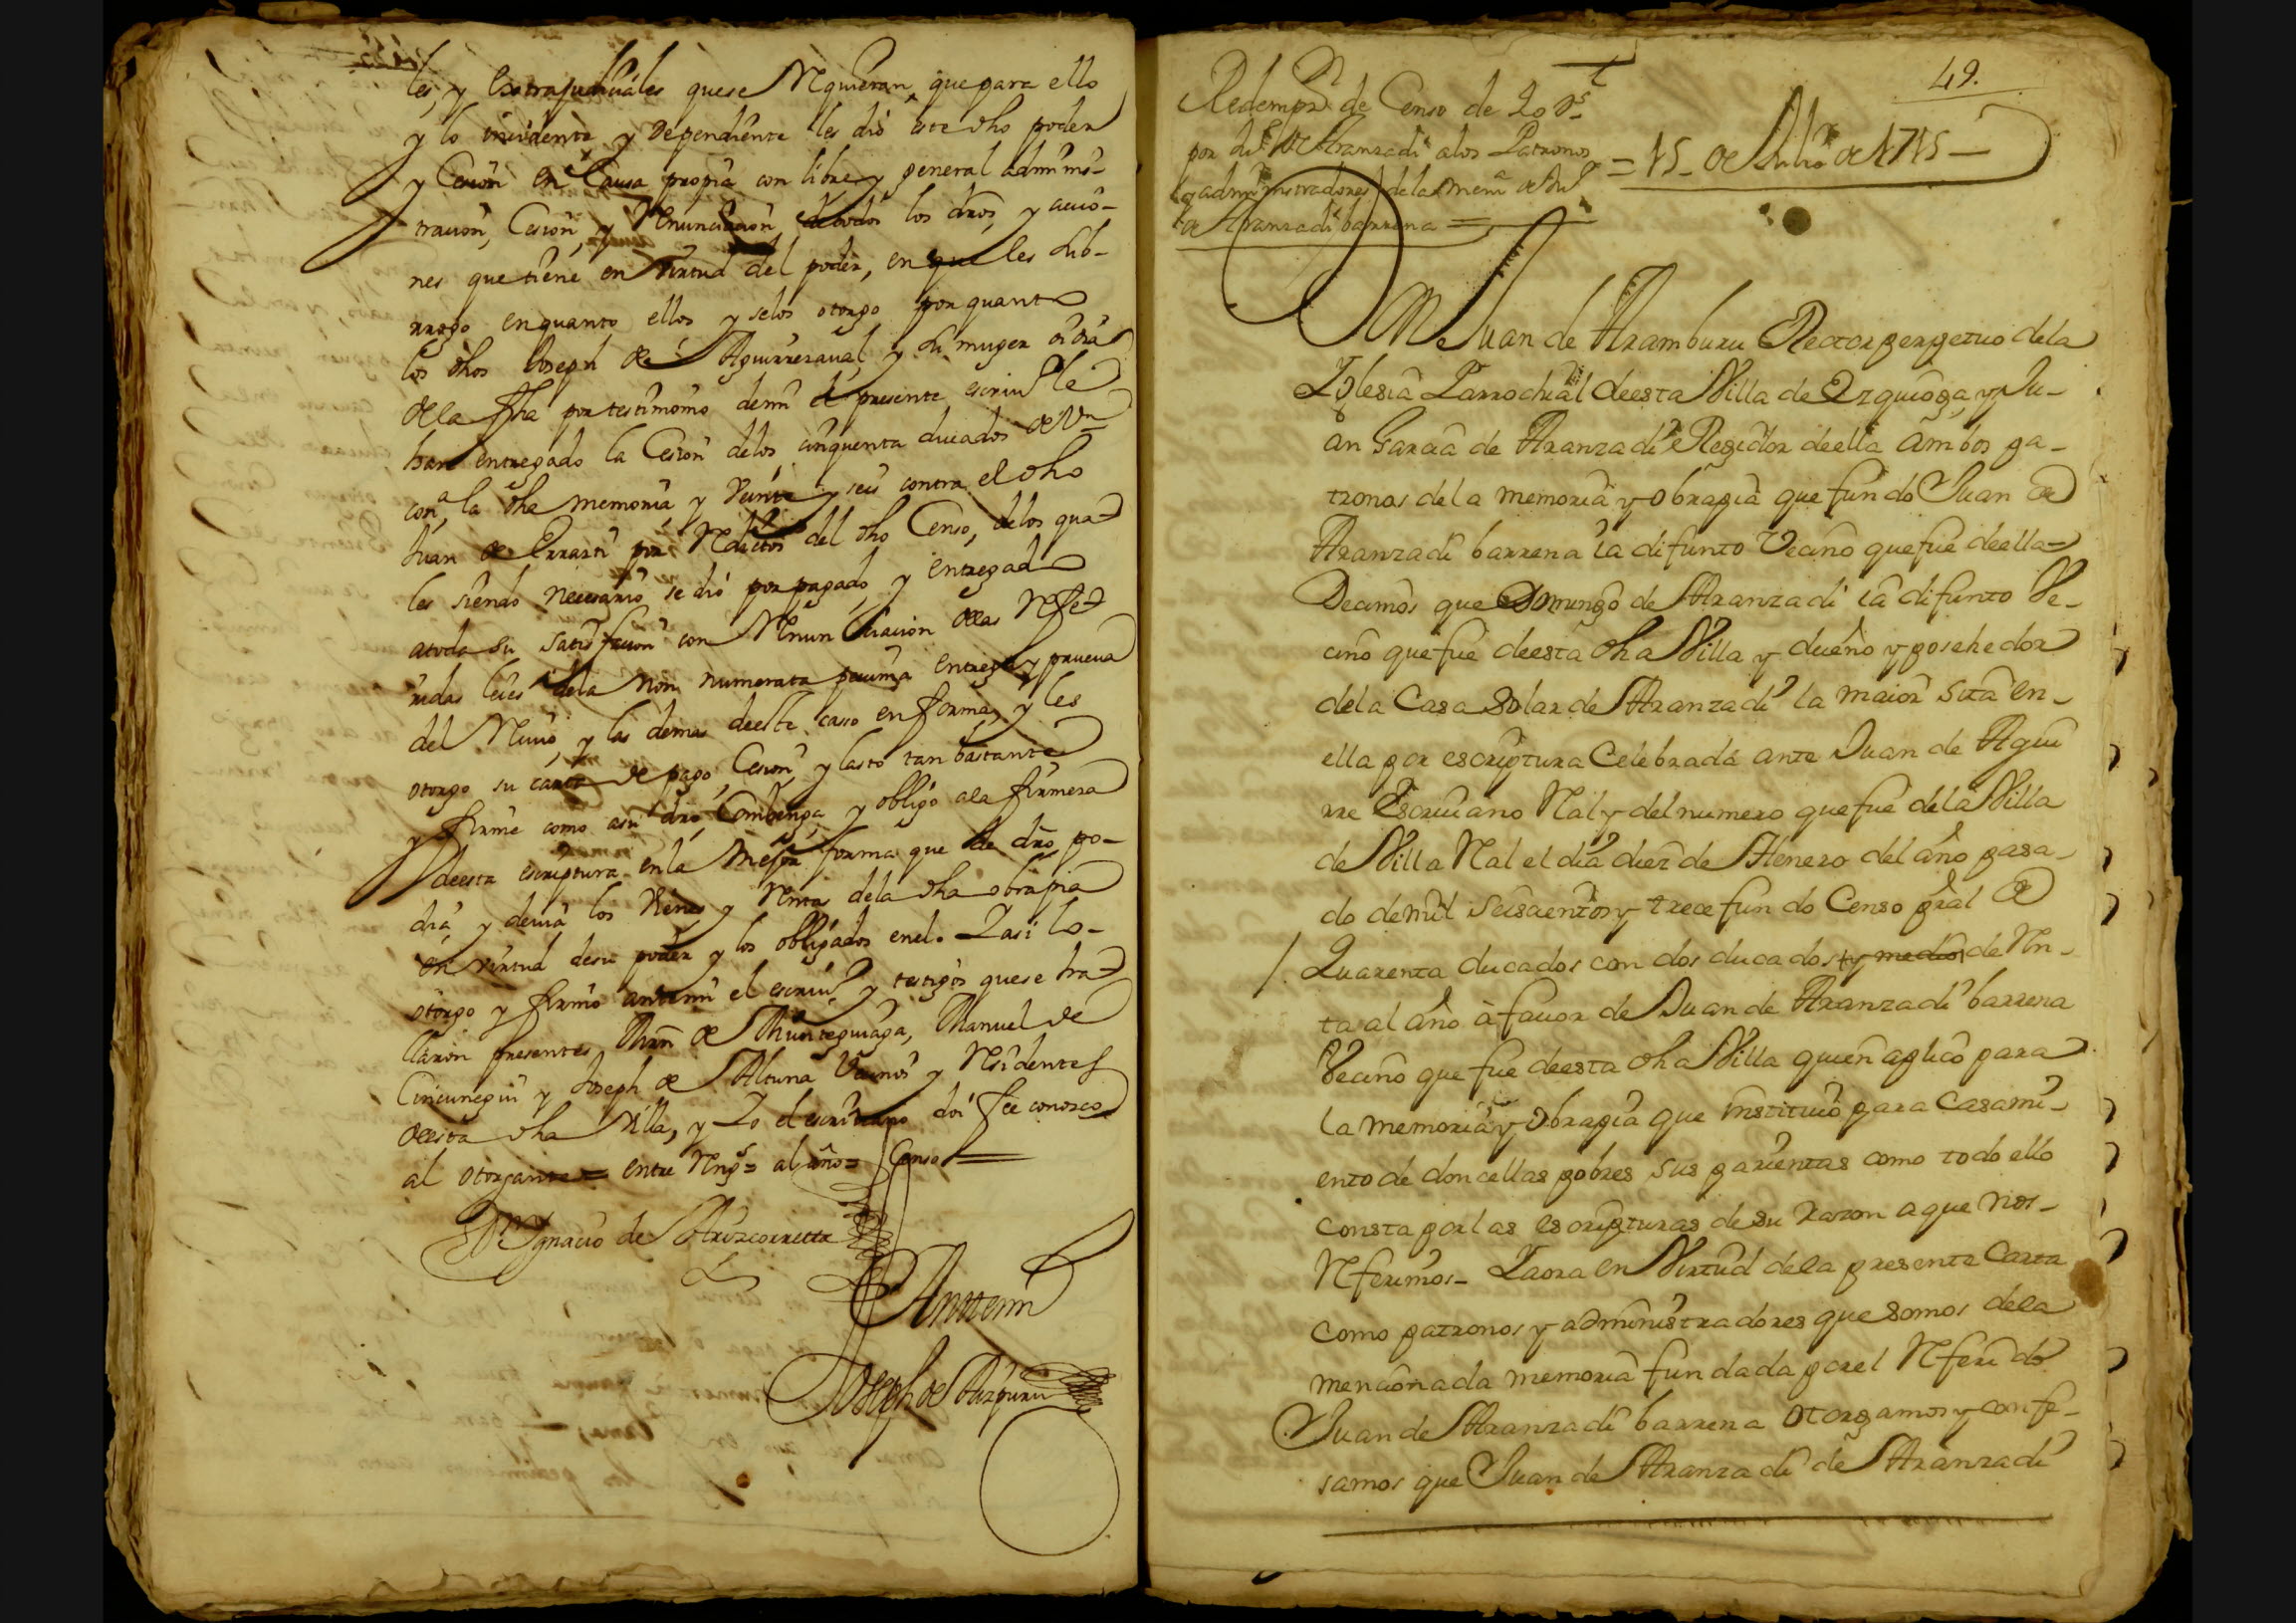 les, y Extrajudiciales que se Requieran, que para ello
y lo incidente y dependiente les dio este dho poder
y Cesion en Causa propia con libre y general adminis-
tracion, Cesion, y Renunciacion de todos los dros, y accio-
nes que tiene en Virtud del poder, en que les sub-
rrogo en quanto ellos y selos otorgo por quanto
los dhos Joseph de Aguirresaval, y su muger
de la fha por testimonio de mi el presente escriuº le
han entregado la Cesion delos cinquenta ducados de Vn
con la dha memoria y Veinte y seis contra el dho
Juan de Errasti por Reditos del dho Censo, delos qua-
les siendo necesario se dió por pagado, y entregado
a toda su satisfacion con Renunciacion de las Refe-
ridas leies dela non numerata pecunia entrega y prueua
del Reciuo, y las demas deeste caso en forma, y les
otorgo su carta de pago, Cesion, y lasto tan bastante
y firme como asu dro Combenga, y obligó ala firmeza
deesta escriptura en la mejor forma que de dro po-
dia, y deuia los Vienes y Rentas dela dha obrapia
en virtud desu poder y los obligados enel. Y asi lo
otorgo y firmo ante mi el escriuº y testigos que se ha-
llaron presentes de Munteguiaga, Manuel de
Cincunegui y Joseph de Altuna Vecinos y Residentes
deesta dha Villa, y Yo el escriuano doi fee conozco
al otorgante = entre Rengs = al año = Censo =
Ignacio de Aruzcorreta
Ante mi
Joseph de Aizpuru
49.
Redempn de Censo de 40 ds
por Jun de Aranzadi a los Patronos
y administradores de la Memª de Juº
de Aranzadi barrena =
= 15 de de 1715 =
Juan de Aramburu Rector perpetuo dela
Yglesia Parrochial deesta Villa de Ezquioga, y Ju-
an Garcia de Aranzadi Regidor deella ambos pa-
tronos dela memoria y Obrapia que fundo Juan de
Aranzadi barrena ia difunto Vecino que fue deella =
Decimos que Domingo de Aranzadi ia difunto Ve-
cino que fue deesta dha Villa y dueño y posehedor
dela Casa Solar de Aranzadi la maior sita en
ella por escriptura Celebrada ante Juan de Agui
rre Escriuano Ral y del numero que fue dela Villa
de Villa Ral el dia diez de Henero del año pasa-
do de mil seiscientos y trece fundo Censo pral de
/. Quarenta ducados con dos ducados y medio de Ren-
ta al año à fauor de Juan de Aranzadi barrena
Vecino que fue deesta dha Villa quien aplico para
la memoria y Obrapia que instituio para Casami-
ento de doncellas pobres sus parientas como todo ello
consta por las escripturas de su razon a que nos
Referimos - Y aora en Virtud dela presente Carta
como patronos y administradores que somos dela
mencionada memoria fundada por el Referido
Juan de Aranzadi barrena Otorgamos y confe-
samos que Juan de Aranzadi de Aranzadi